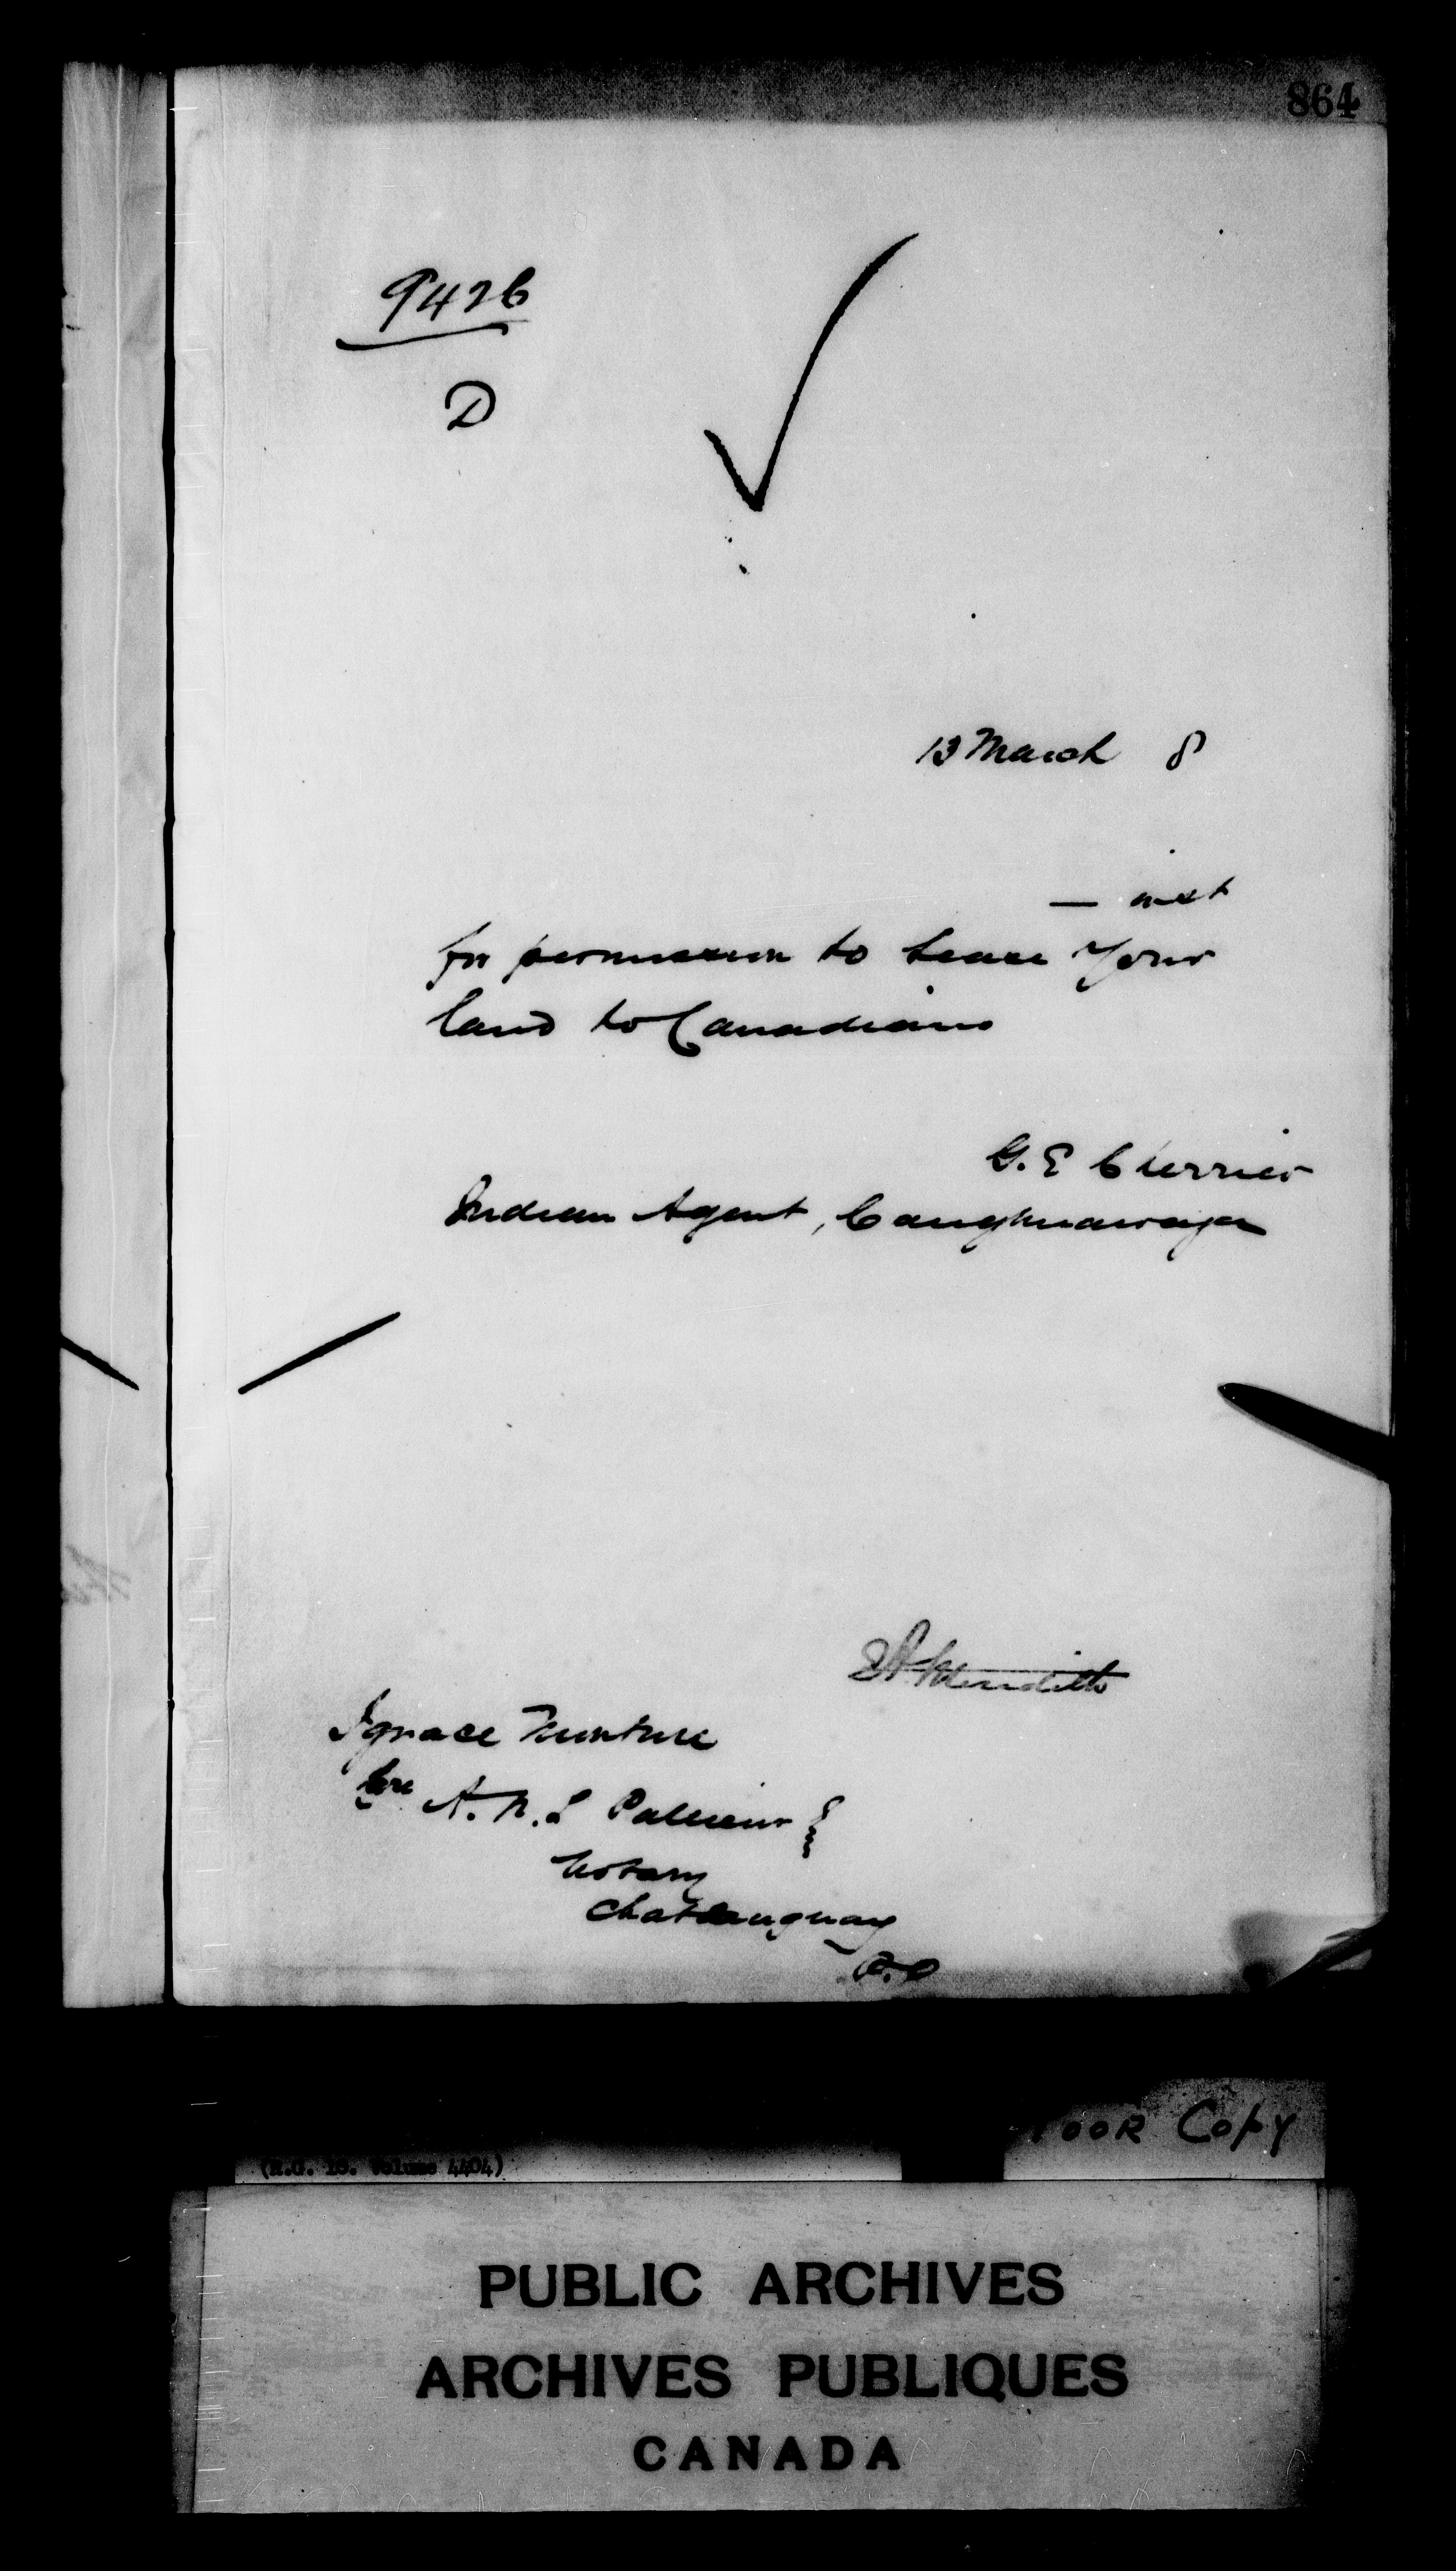 864
9426
D
13 March 8
— inst
for permission to lease your
land to Canadians
G. E Cherrier
Indian Agent, Caughnawaga
E A Meredith
Ignace
Care A. N. L
Notary
Chateauguay
P.Q
Poor Copy
(R.G. 10. Volume 4404)
PUBLIC ARCHIVES
ARCHIVES PUBLIQUES
CANADA